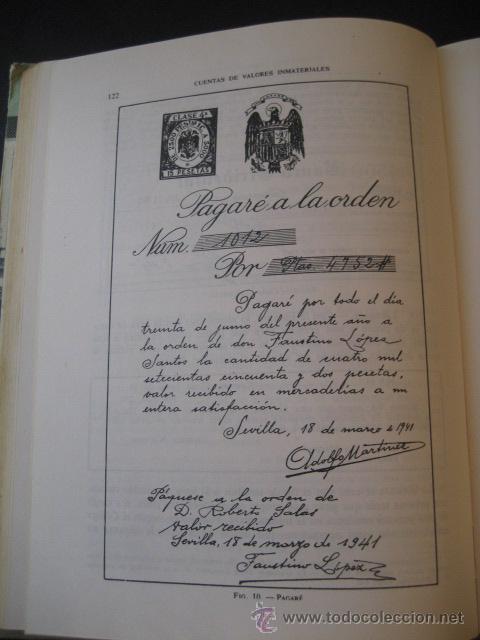 CUENTAS DE VALORES INMATERIALES
122
CLASE 4ª
DE 2500 PUNTMC A 5000
15 PESETAS
Pagaré a la orden
Num. 1012
Por Ptas. 4752#
Pagaré por todo el día
treinta de junio del presente año a
la orden de don Faustino López
Santos la cantidad de cuatro mil
setecientas cincuenta y dos pesetas,
valor recibido en mercaderías a mi
entera satisfacción.
Sevilla, 18 de marzo d 1941
Adolfo Martinez
Páguese a la orden de
D. Roberto Salas
valor recibido
Sevilla, 18 de marzo de 1941
Faustino López
FIG. 10. — PAGARÉ
www.todocoleccion.net